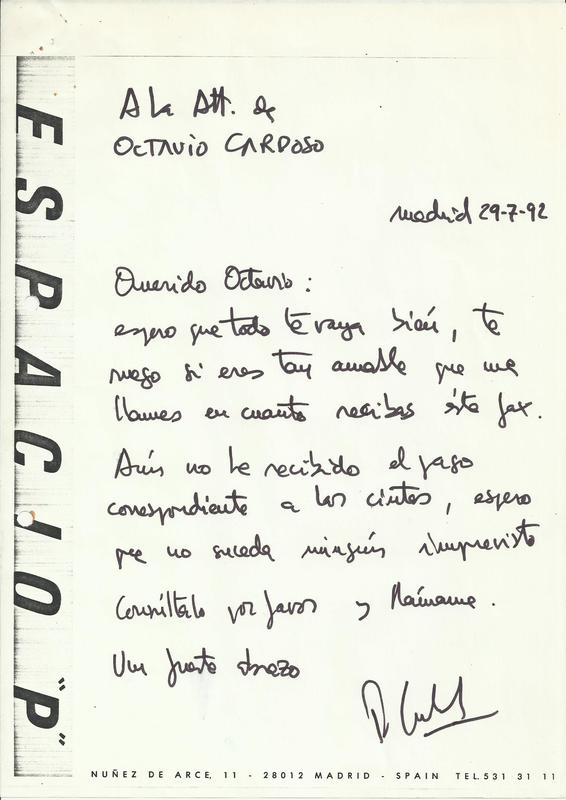 ESPACIO "P"
A la Att. de
OCTAVIO CARDOSO
Madrid 29-7-92
Querido Octavio:
espero que todo te vaya bién, te
ruego si eres tan amable que me
llames en cuanto recibas éste fax.
Aún no he recibido el pago
correspondiente a las cintas, espero
que no suceda ningún imprevisto
Consúltalo por favor y llámame.
Un fuerte abrazo
NUÑEZ DE ARCE, 11 - 28012 MADRID - SPAIN TEL. 531 31 11